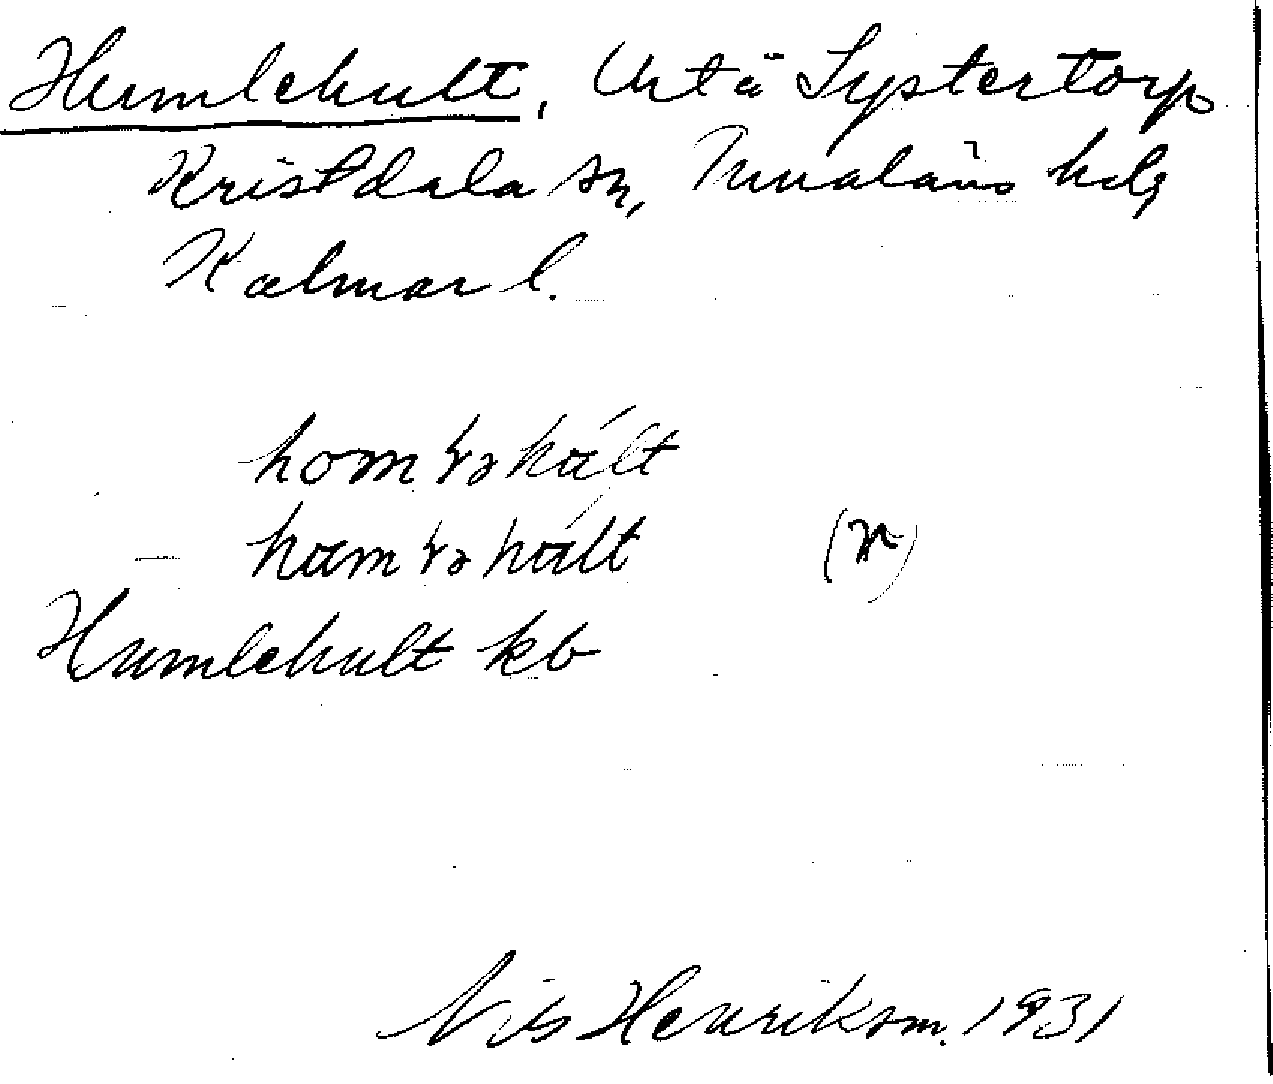 Humlehult, Urt å Systertorp
Kristdala sn, Tunaläns hd,
Kalmar l.
homləhált
hamləhált (n)
Humlehult kb
Nils Henrikson. 1931